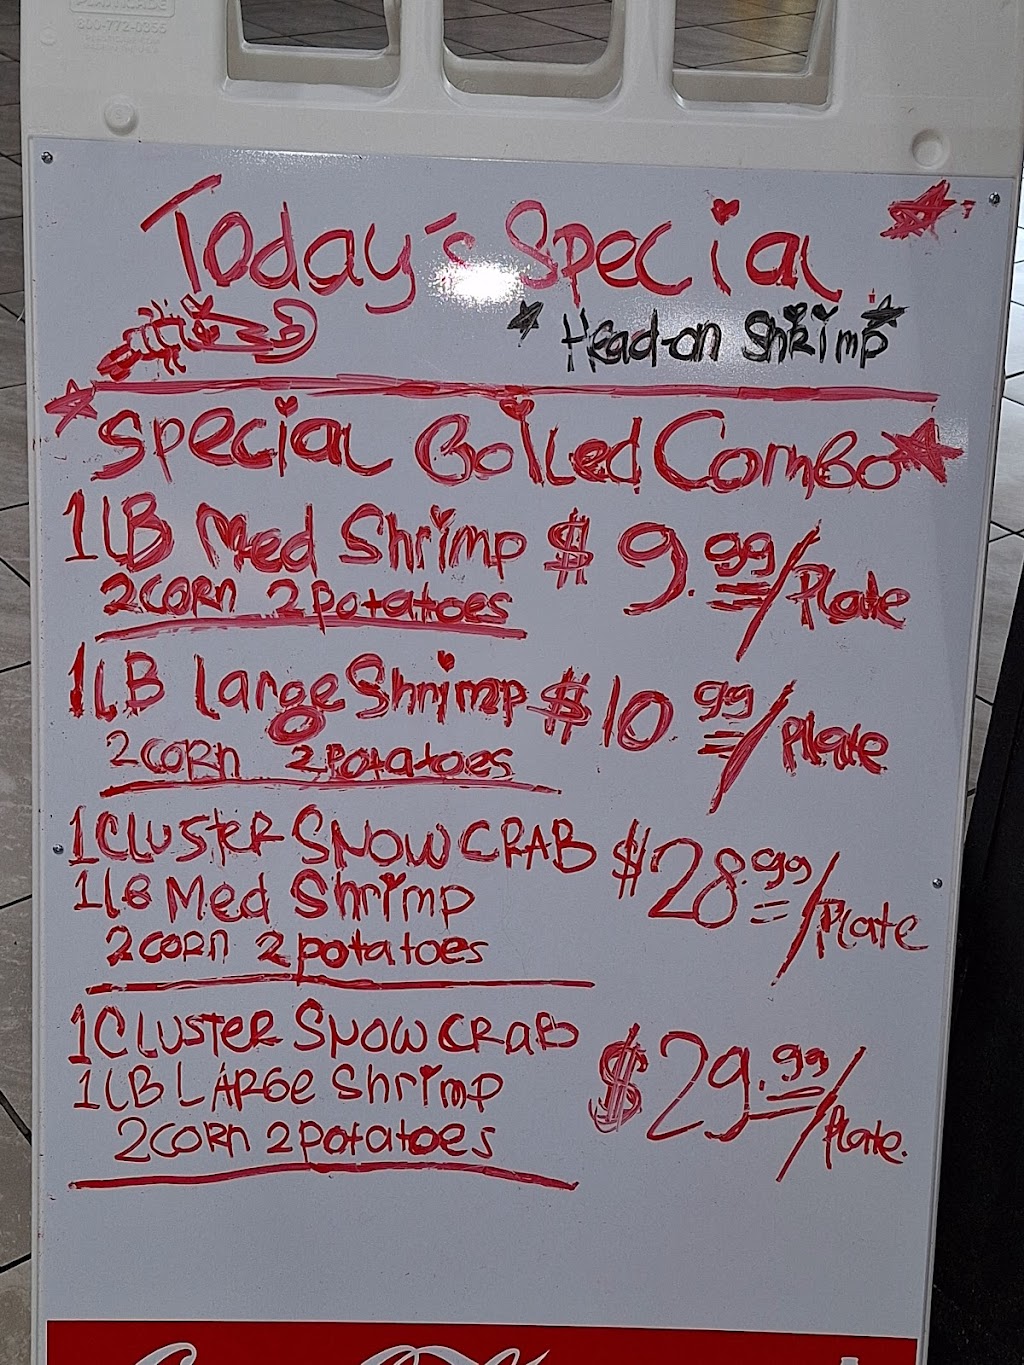 800-772-0355
Today's Special
Head-on Shrimp
Special Boiled Combo
1LB Med Shrimp $9.99/Plate
2 CORN 2 potatoes
1LB Large Shrimp $10.99/Plate
2 CORN 2 potatoes
1 CLUSTER SNOW CRAB $28.99/Plate
1LB Med Shrimp
2 CORN 2 potatoes
1 CLUSTER SNOW CRAB
1LB LARGe Shrimp $29.99/Plate.
2 CORN 2 potatoes